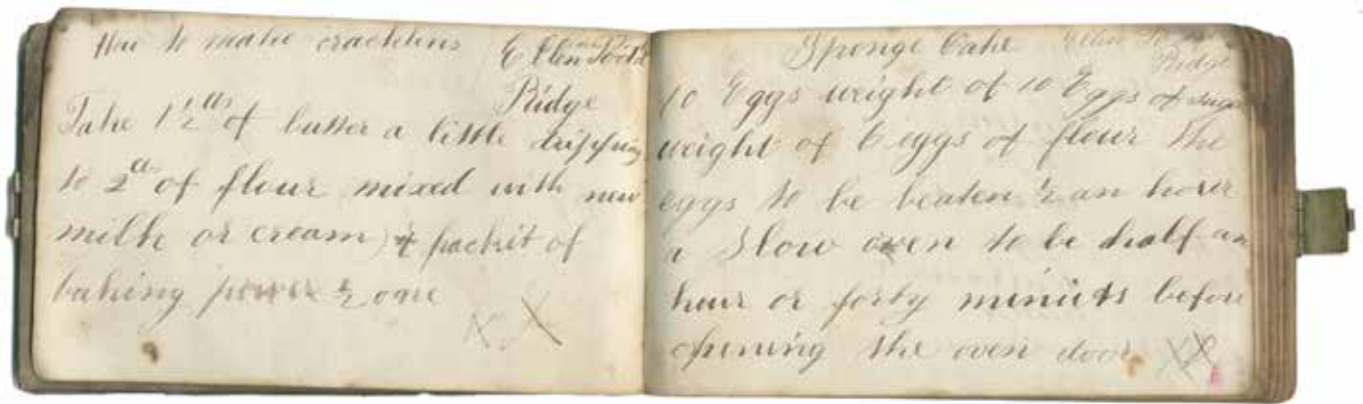 How to make cracklins Ellen
Ridge
Take 1 1/2 lbs of butter a little dripping
to 2 lbs of flour mixed with new
milk or cream) packit of
baking power 1/2 one
X X
Sponge Cake Ellen
Ridge
10 Eggs weight of 10 Eggs of sugar
weight of 6 eggs of flour the
eggs to be beaten 1/2 an hour
a Slow oven to be half an
hour or forty miniets before
opening the oven door XX